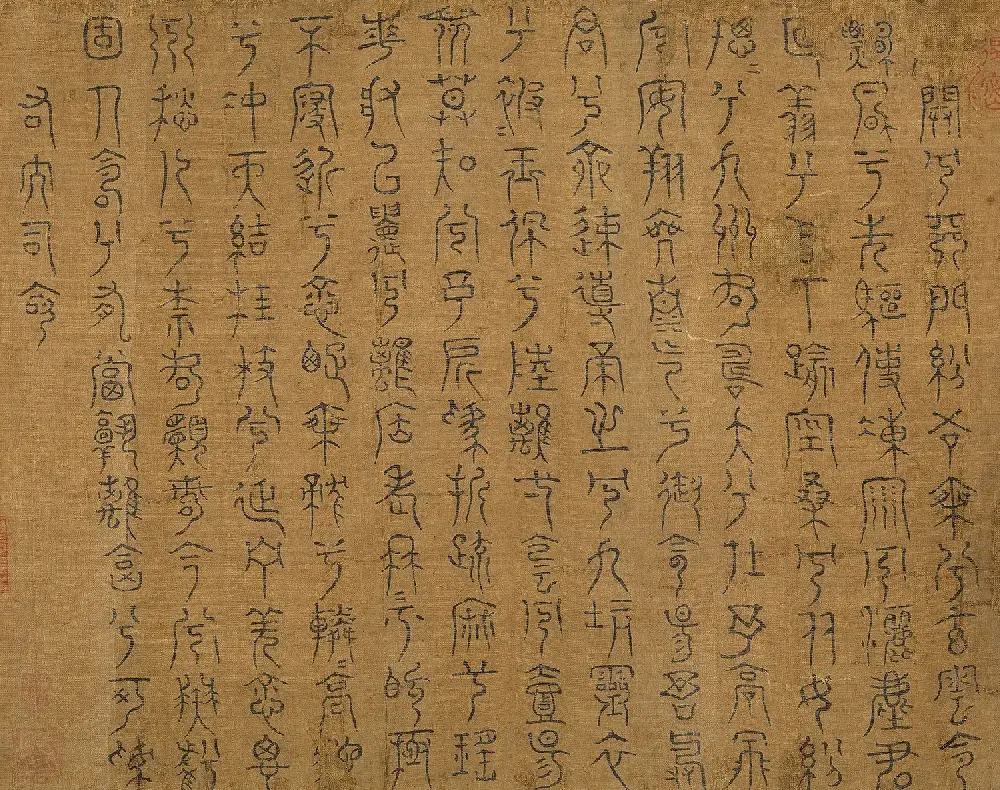 開兮天門紛吾乘兮玄雲令
飄風兮先驅使凍雨兮灑塵君
迴翔兮以下踰空桑兮從女紛
總〻兮九州何壽夭兮在予高飛
兮安翔乘清氣兮御陰陽吾與
君兮齋速導帝之兮九坑靈衣
兮被〻玉佩兮陸離壹陰兮壹陽
眾莫知兮余所為折疏麻兮瑤
華將以遺兮離居老冉〻兮既極
不寖近兮愈疏乘龍兮轔〻高馳
兮沖天結桂枝兮延佇羌愈思
愁人兮奈何願若今兮無虧
固人命兮有當孰離合兮可為
右大司命